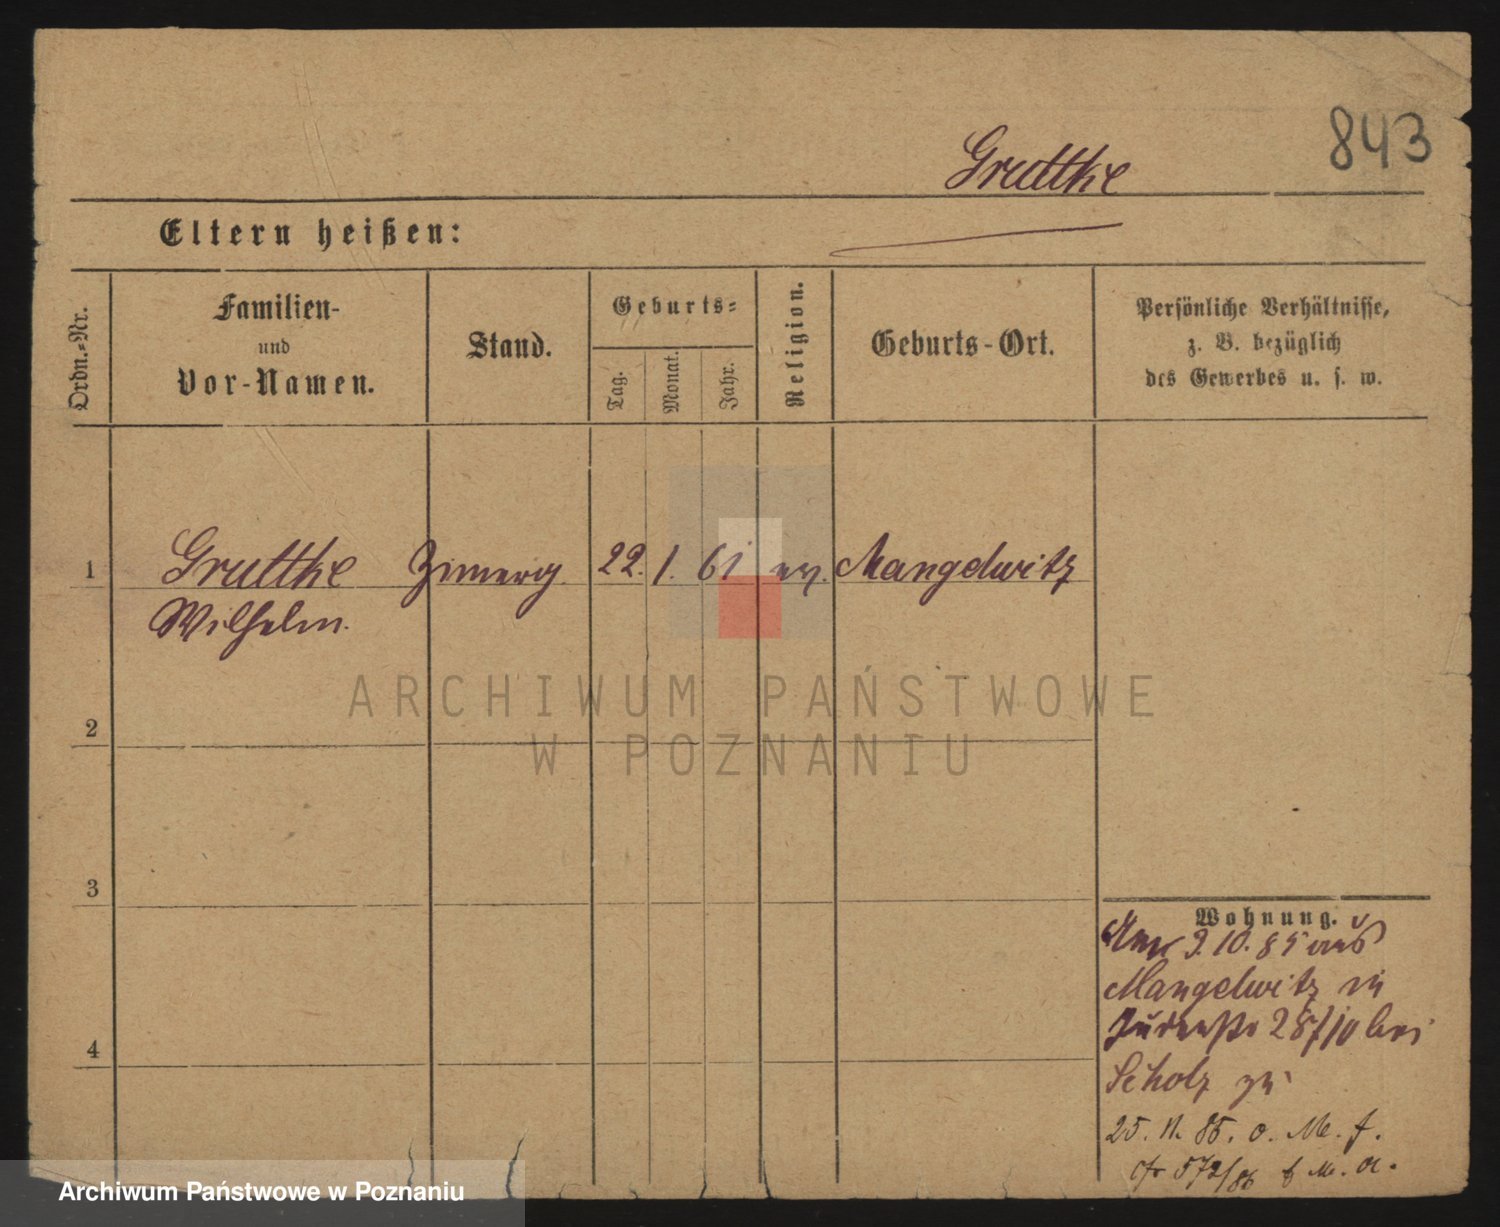 843
Gruttke
Eltern heißen:
Ordn.-Nr.
Familien-
und
Vor-Namen.
Stand.
Geburts-
Tag.
Monat.
Jahr.
Religion.
Geburts-Ort.
Persönliche Verhältnisse,
z. B. bezüglich
des Gewerbes u. s. w.
1 Gruttke 22. 1. 61 ev. Mangelwitz
Wilhelm.
ARCHIWUM PAŃSTWOWE
W POZNANIU
2
3
4
Wohnung.
9.10.85 aus
Mangelwitz in
Judenstr 28/10 bei
Scholz zu
25. 11. 85. o. M. f.
cfr 572/86 f M. a.
Archiwum Państwowe w Poznaniu